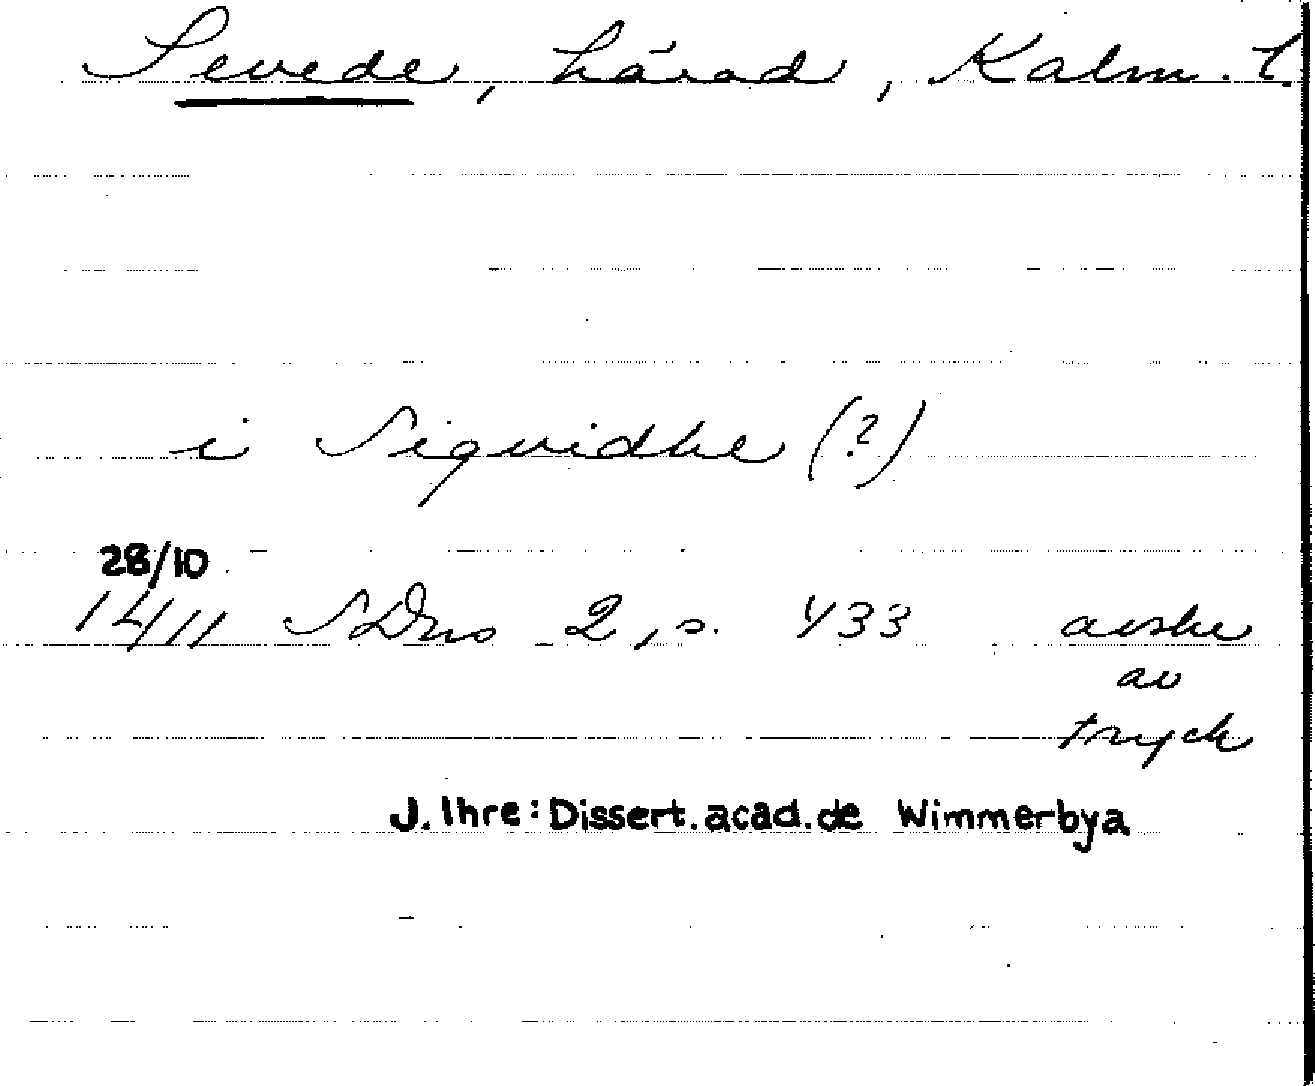 Sevede, härad, Kalm. l.
i Siqvidhe (?)
28/10
1411 SDns 2, s. 433 avskr
av
tryck
J. Ihre: Dissert. acad. de Wimmerbya